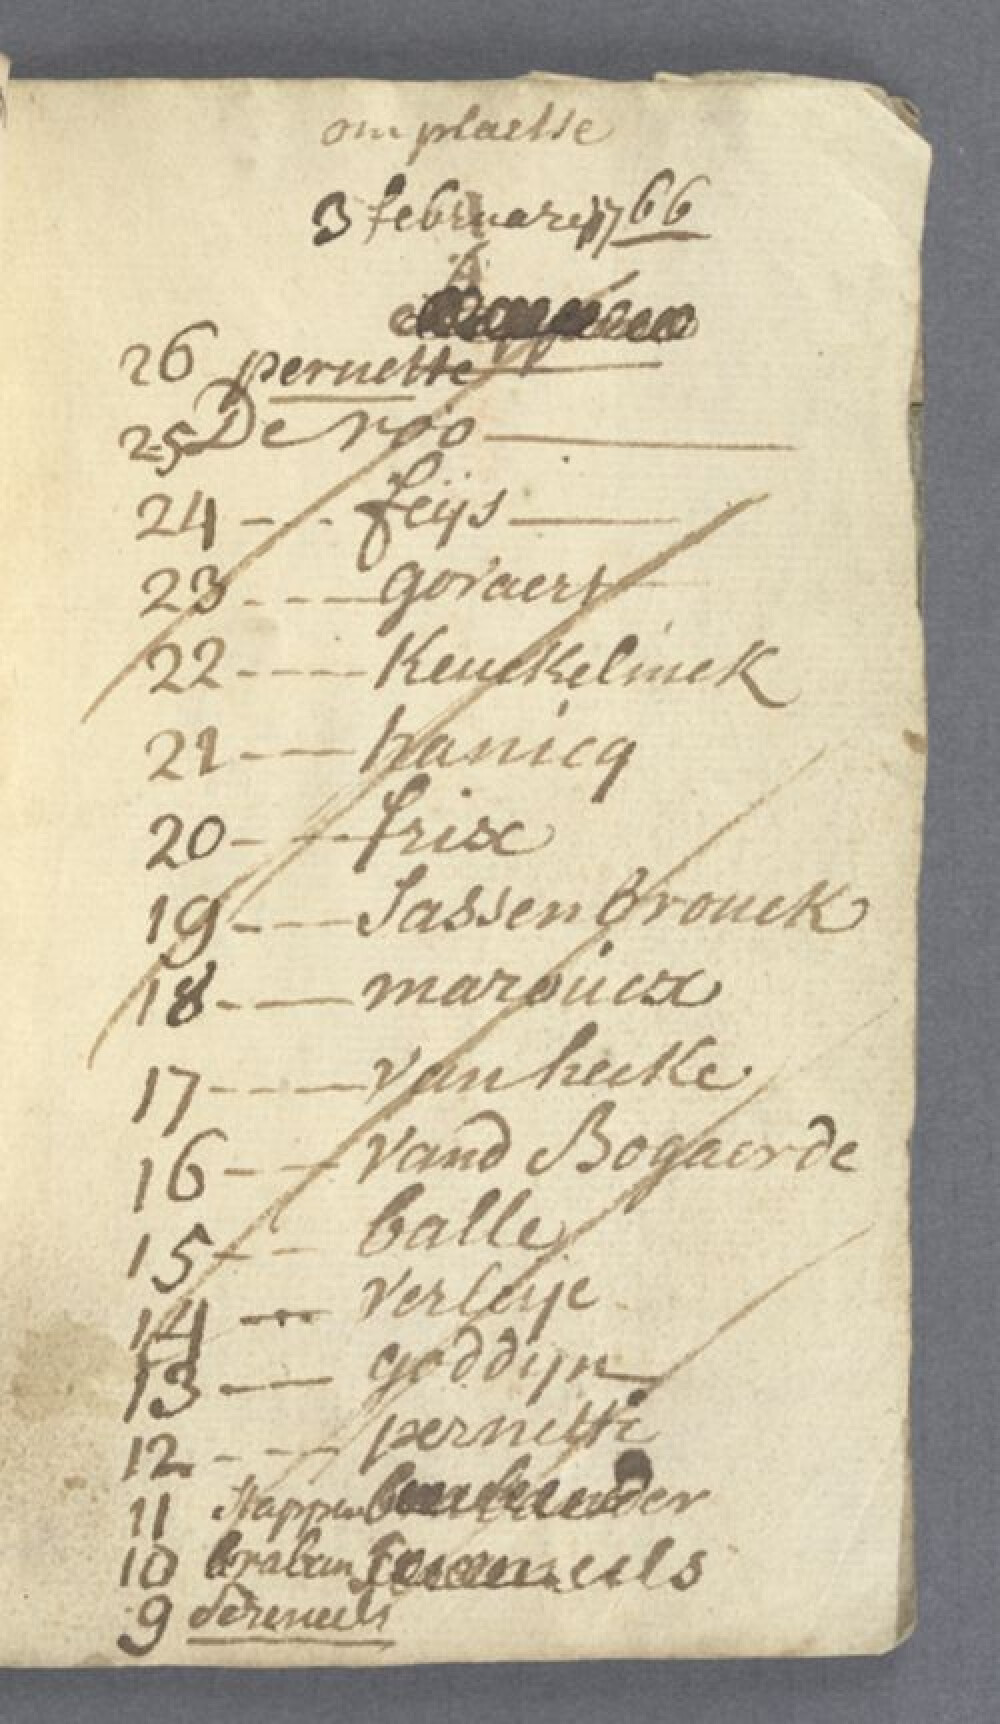 om plaetse
3 februare 1766
26 pernette
25 De roo
24 feijs
23 govaert
22 Keuckelinck
21 hanicq
20 frixe
19 Sassenbrouck
18 maroucx
17 van hecke
16 vand Bogaerde
15 balle
14
13 goddijn
12 pernette
11
10 braban
9